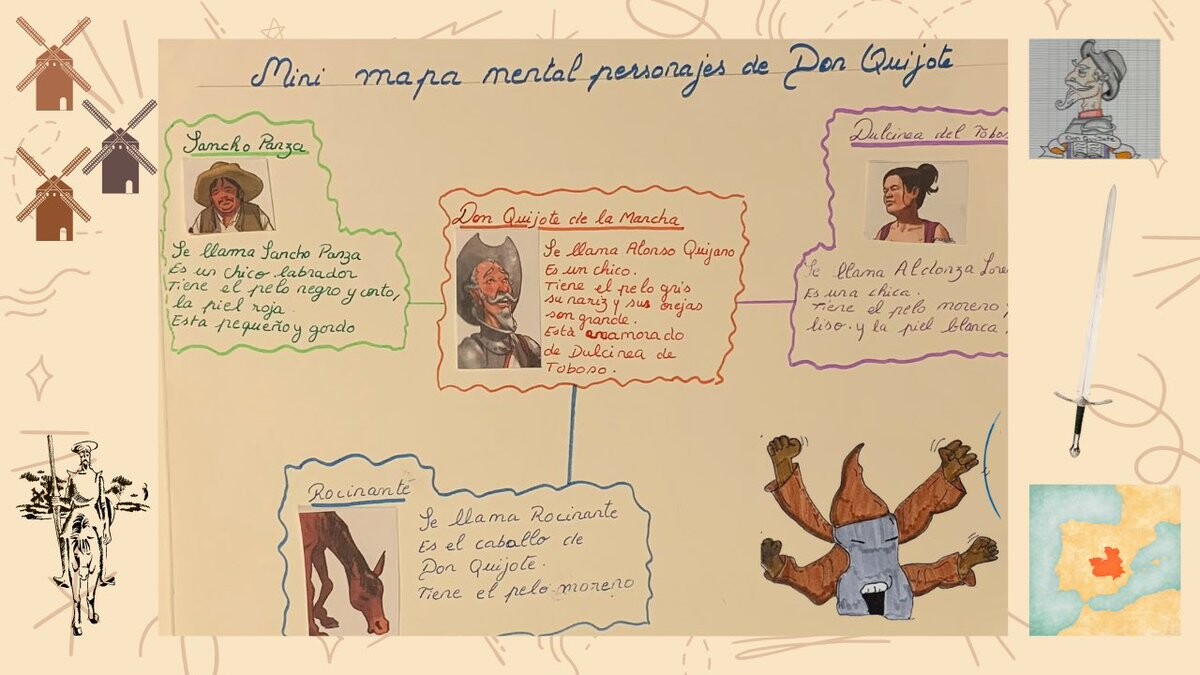 Mini mapa mental personajes de Don Quijote
Sancho Panza
Se llama Sancho Panza
Es un chico labrador
Tiene el pelo negro y corto,
la piel roja.
Esta pequeño y gordo
Don Quijote de la Mancha
Se llama Alonso Quijano
Es un chico.
Tiene el pelo gris
su nariz y sus orejas
son grande.
Està enamorado
de Dulcinea de
Toboso.
Dulcinea del Tobos
Se llama Aldonza Lore
Es una chica
Tiene el pelo moreno,
liso. y la piel blanca.
Rocinante
Se llama Rocinante
Es el caballo de
Don Quijote.
Tiene el pelo moreno
Don Quijote